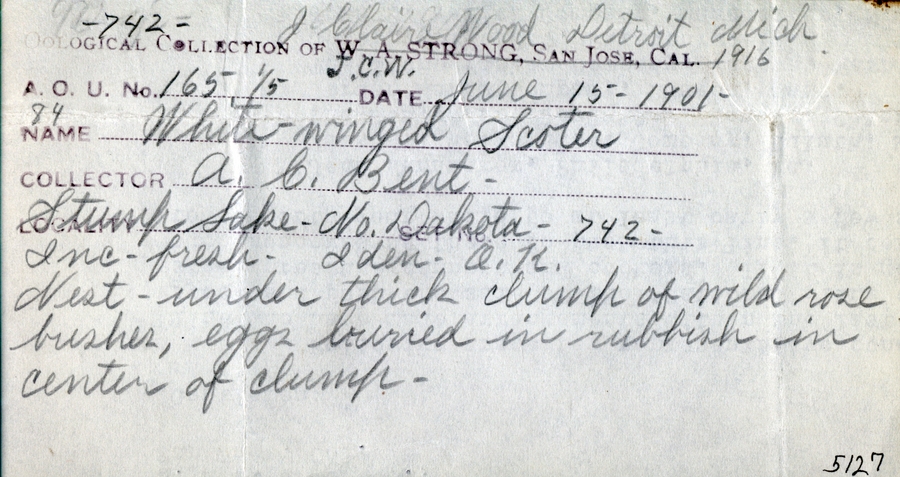 -742-
J. Claire Wood Detroit Mich.
OOLOGICAL COLLECTION OF W. A. STRONG, SAN JOSE, CAL. 1916
J.C.W.
A. O. U. No. 165 1/5 DATE June 15-1901-
84
NAME White-winged Scoter
COLLECTOR A. C. Bent-
Stump Lake-No. Dakota- SET NO. 742-
Inc-fresh- Iden-O.K.
Nest-under thick clump of wild rose
bushes, eggs buried in rubbish in
center of clump-
5127